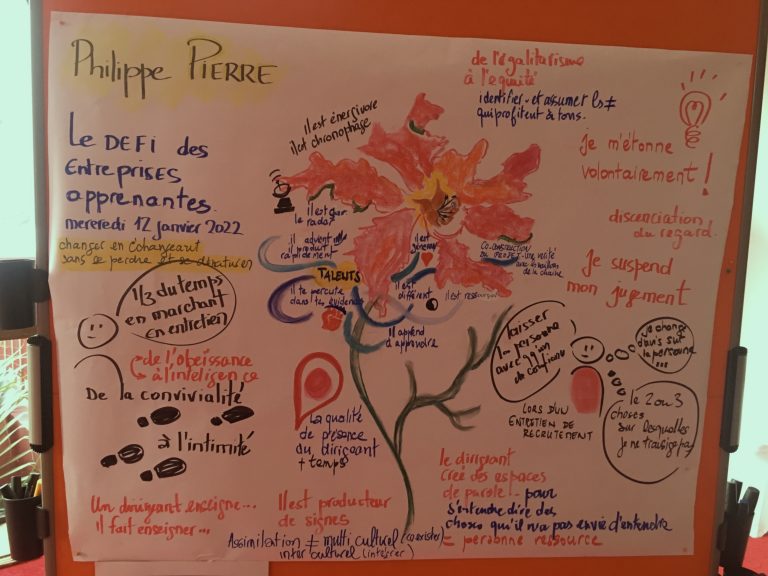 Philippe PIERRE
Le DEFI des
Entreprises
apprenantes.
mercredi 12 janvier 2022
changer en échangeant
sans se perdre et se dénaturer
1/3 du temps
en marchant
en entretien
de l'obeissance
à l'intelligence
De la convivialité
à l'intimité
Un dirigeant enseigne...
il fait enseigner...
Il est énergivore
il est chronophage
il est sur
le radar
il advient
il produit
rapidement
TALENTS
il te percute
dans tes évidences
il est
généreux
il est
différent
il est ressource
Il apprend
à apprendre
CO-CONSTRUCTION
DU PROJET
de la chaine
La qualité
de présence
du dirigeant
+ temps
Il est producteur
de signes
Assimilation ≠ multi culturel (coexister)
inter culturel (intégrer)
de l'égalitarisme
à l'équité
identifier et assumer les ≠
qui profitent à tous.
je m'étonne
volontairement !
discenciation
du regard.
Je suspend
mon jugement
laisser
la personne
avec
de confiance
LORS D'UN
ENTRETIEN DE
RECRUTEMENT
je change
d'avis sur
la personne
...
le 2 ou 3
choses
sur lesquelles
je ne transige pas
le dirigeant
crée des espaces
de parole ! - pour
s'entendre dire des
choses qu'il n'a pas envie d'entendre
= personne ressource